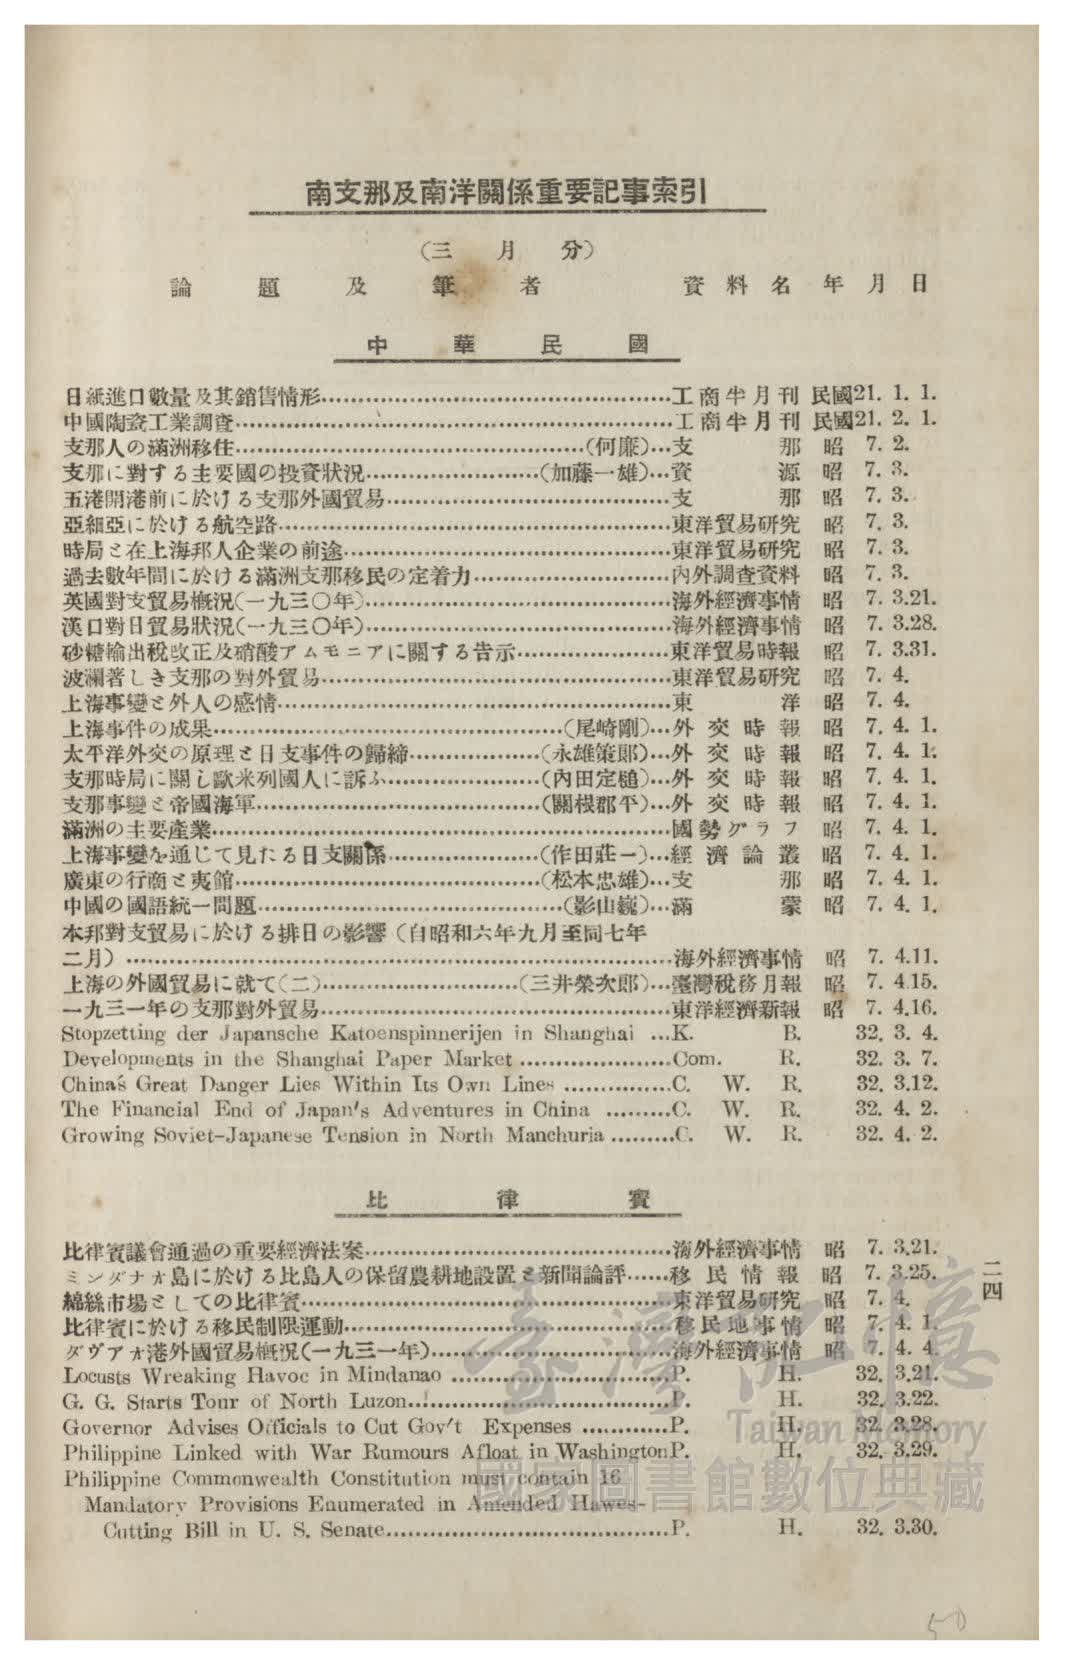 南支那及南洋關係重要記事索引
（三月分）
論題及筆者 資料名 年月日
中華民國
日紙進口數量及其銷售情形…工商半月刊 民國21. 1. 1.
中國陶瓷工業調查…工商半月刊 民國21. 2. 1.
支那人の滿洲移住…（何廉）…支那 昭 7. 2.
支那に對する主要國の投資狀況…（加藤一雄）…資源 昭 7. 3.
五港開港前に於ける支那外國貿易…支那 昭 7. 3.
亞細亞に於ける航空路…東洋貿易研究 昭 7. 3.
時局と在上海邦人企業の前途…東洋貿易研究 昭 7. 3.
過去數年間に於ける滿洲支那移民の定着力…內外調查資料 昭 7. 3.
英國對支貿易槪況（一九三〇年）…海外經濟事情 昭 7. 3.21.
漢口對日貿易狀況（一九三〇年）…海外經濟事情 昭 7. 3.28.
砂糖輸出稅改正及硝酸アムモニアに關する告示…東洋貿易時報 昭 7. 3.31.
波瀾著しき支那の對外貿易…東洋貿易研究 昭 7. 4.
上海事變と外人の感情…東洋 昭 7. 4.
上海事件の成果…（尾崎剛）…外交時報 昭 7. 4. 1.
太平洋外交の原理と日支事件の歸締…（永雄策郎）…外交時報 昭 7. 4. 1.
支那時局に關し歐米列國人に訴ふ…（內田定槌）…外交時報 昭 7. 4. 1.
支那事變と帝國海軍…（關根郡平）…外交時報 昭 7. 4. 1.
滿洲の主要產業…國勢グラフ 昭 7. 4. 1.
上海事變を通じて見たる日支關係…（作田莊一）…經濟論叢 昭 7. 4. 1.
廣東の行商と夷館…（松本忠雄）…支那 昭 7. 4. 1.
中國の國語統一問題…（影山巍）…滿蒙 昭 7. 4. 1.
本邦對支貿易に於ける排日の影響（自昭和六年九月至同七年
二月）…海外經濟事情 昭 7. 4.11.
上海の外國貿易に就て（二）…（三井榮次郎）…臺灣稅務月報 昭 7. 4.15.
一九三一年の支那對外貿易…東洋經濟新報 昭 7. 4.16.
Stopzetting der Japansche Katoenspinnerijen in Shanghai ...K. B. 32. 3. 4.
Developments in the Shanghai Paper Market …Com. R. 32. 3. 7.
China's Great Danger Lies Within Its Own Lines …C. W. R. 32. 3.12.
The Financial End of Japan's Adventures in China …C. W. R. 32. 4. 2.
Growing Soviet-Japanese Tension in North Manchuria …C. W. R. 32. 4. 2.
比律賓
比律賓議會通過の重要經濟法案…海外經濟事情 昭 7. 3.21.
ミンダナオ島に於ける比島人の保留農耕地設置と新聞論評…移民情報 昭 7. 3.25.
綿絲市場としての比律賓…東洋貿易研究 昭 7. 4.
比律賓に於ける移民制限運動…移民地事情 昭 7. 4. 1.
ダヴァオ港外國貿易槪況（一九三一年）…海外經濟事情 昭 7. 4. 4.
Locusts Wreaking Havoc in Mindanao …P. H. 32. 3.21.
G. G. Starts Tour of North Luzon…P. H. 32. 3.22.
Governor Advises Officials to Cut Gov't Expenses …P. H. 32. 3.28.
Philippine Linked with War Rumours Afloat in Washington P. H. 32. 3.29.
Philippine Commonwealth Constitution must contain 16
Mandatory Provisions Enumerated in Amended Hawes-
Cutting Bill in U. S. Senate…P. H. 32. 3.30.
二四
臺灣記憶
Taiwan Memory
國家圖書館數位典藏
50